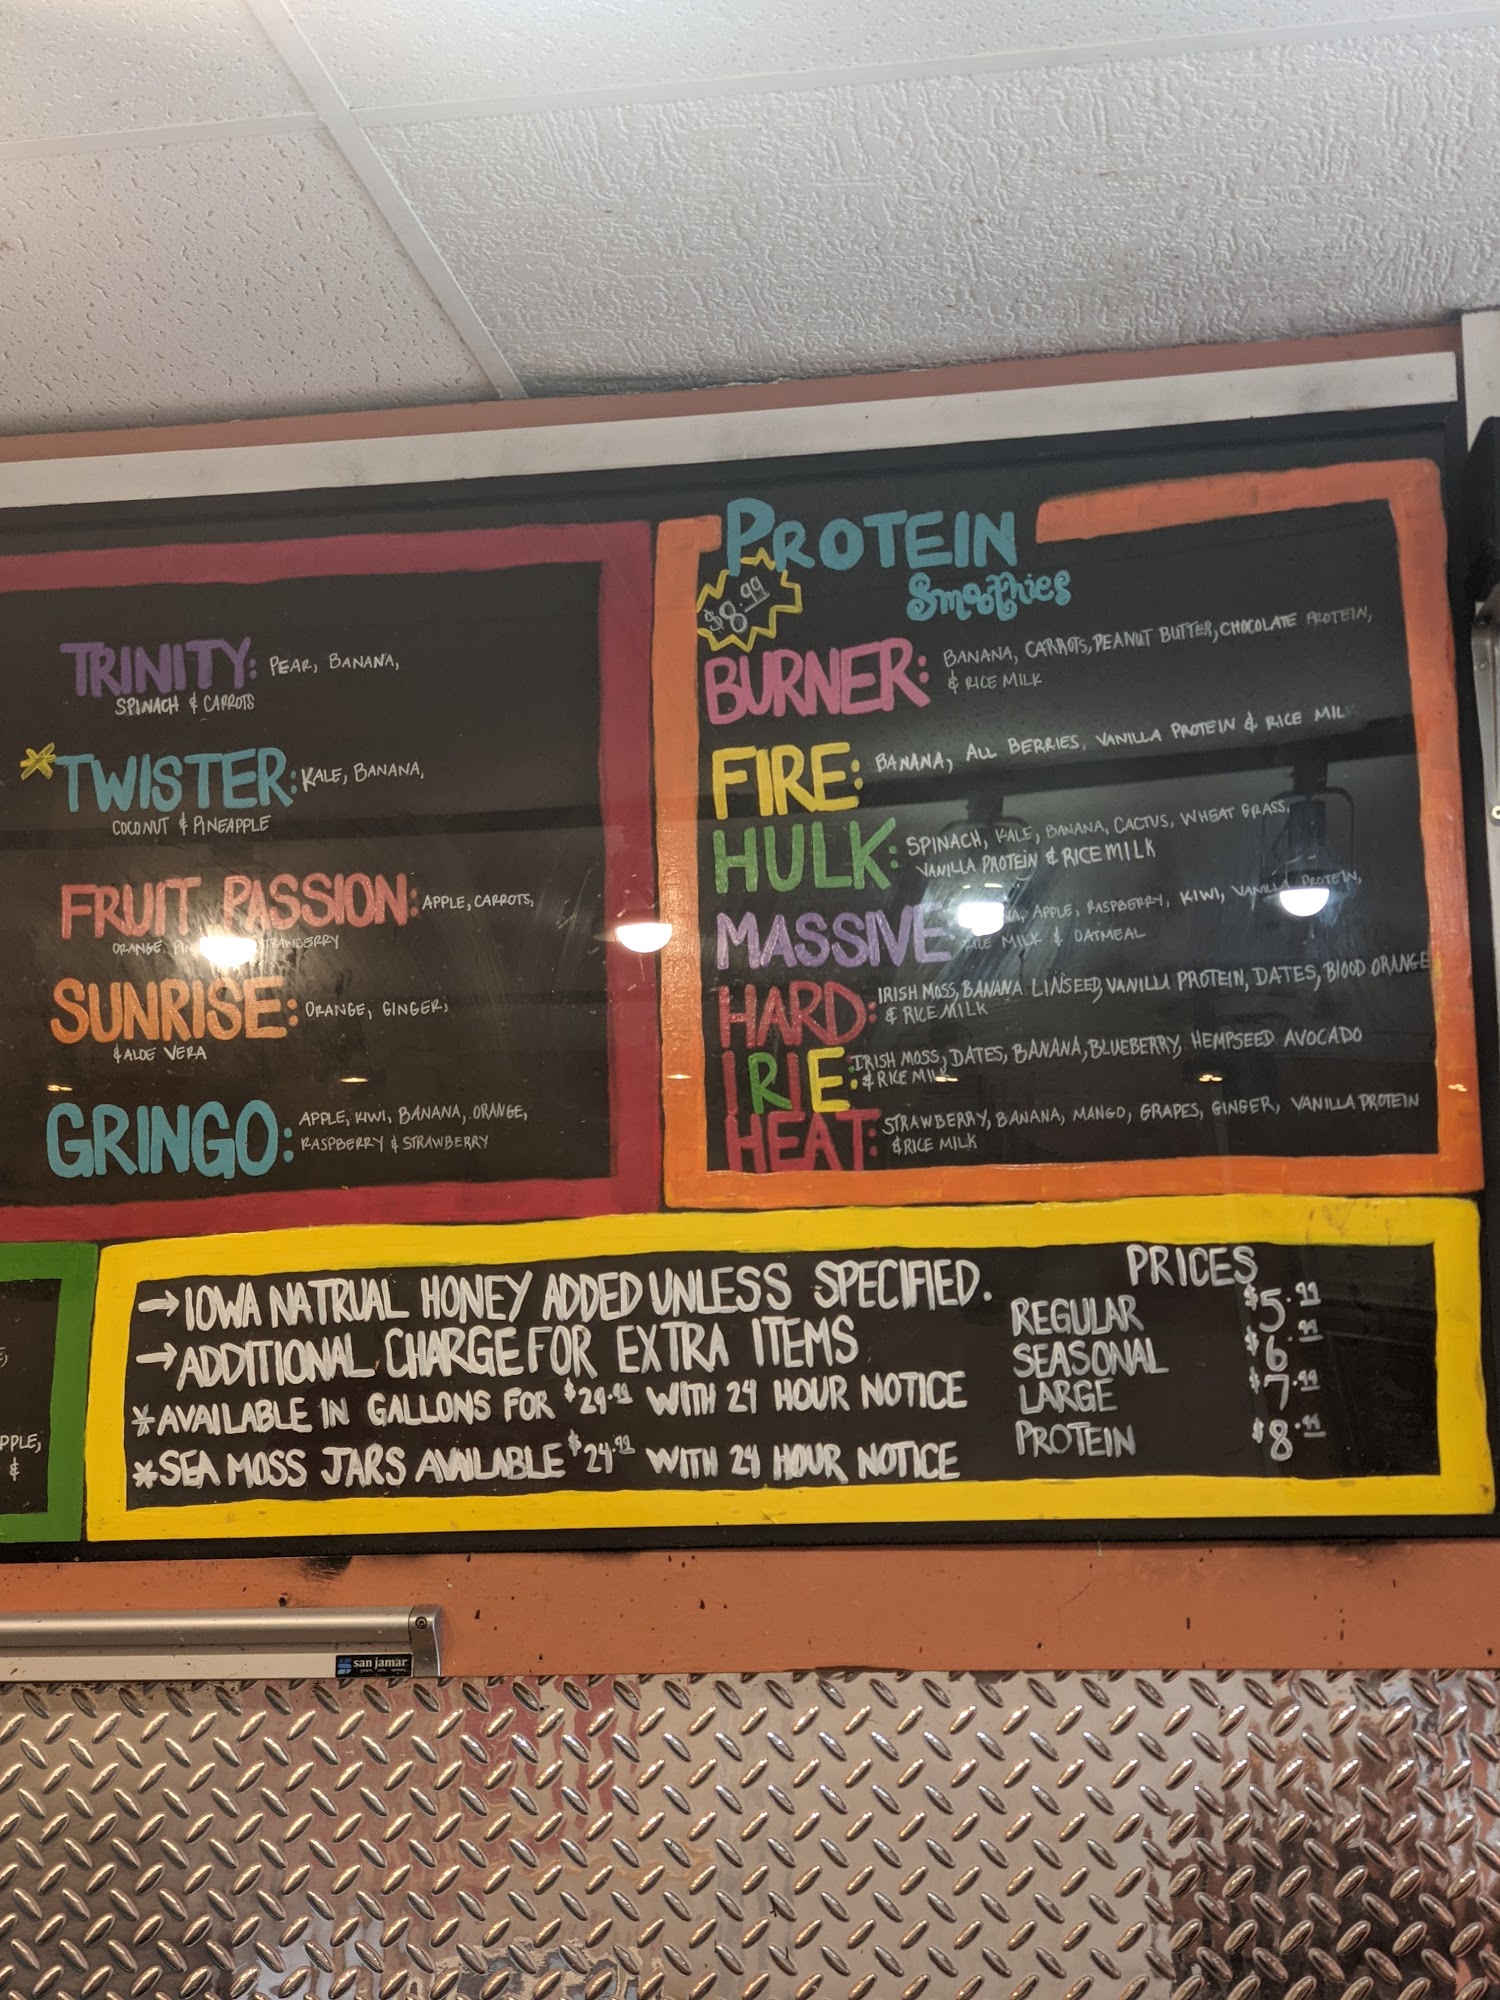 TRINITY: PEAR, BANANA,
SPINACH & CARROTS
*TWISTER: KALE, BANANA,
COCONUT & PINEAPPLE
FRUIT PASSION: APPLE, CARROTS,
ORANGE, STRAWBERRY
SUNRISE: ORANGE, GINGER,
& ALOE VERA
GRINGO: APPLE, KIWI, BANANA, ORANGE,
RASPBERRY & STRAWBERRY
PROTEIN
Smoothies
$8.99
BURNER: BANANA, CARROTS, PEANUT BUTTER, CHOCOLATE PROTEIN,
& RICE MILK
FIRE: BANANA, ALL BERRIES, VANILLA PROTEIN & RICE MILK
HULK: SPINACH, KALE, BANANA, CACTUS, WHEAT GRASS,
VANILLA PROTEIN & RICE MILK
MASSIVE APPLE, RASPBERRY, KIWI, VANILLA PROTEIN,
MILK & OATMEAL
HARD: IRISH MOSS, BANANA LINSEED, VANILLA PROTEIN, DATES, BLOOD ORANGE
& RICE MILK
IRIE: IRISH MOSS, DATES, BANANA, BLUEBERRY, HEMPSEED AVOCADO
& RICE MILK
HEAT: STRAWBERRY, BANANA, MANGO, GRAPES, GINGER, VANILLA PROTEIN
& RICE MILK
PPLE,
&
→IOWA NATRUAL HONEY ADDED UNLESS SPECIFIED.
→ADDITIONAL CHARGE FOR EXTRA ITEMS
*AVAILABLE IN GALLONS FOR $29.99 WITH 24 HOUR NOTICE
*SEA MOSS JARS AVAILABLE $24.99 WITH 24 HOUR NOTICE
PRICES
REGULAR $5.99
SEASONAL $6.99
LARGE $7.99
PROTEIN $8.99
san jamar